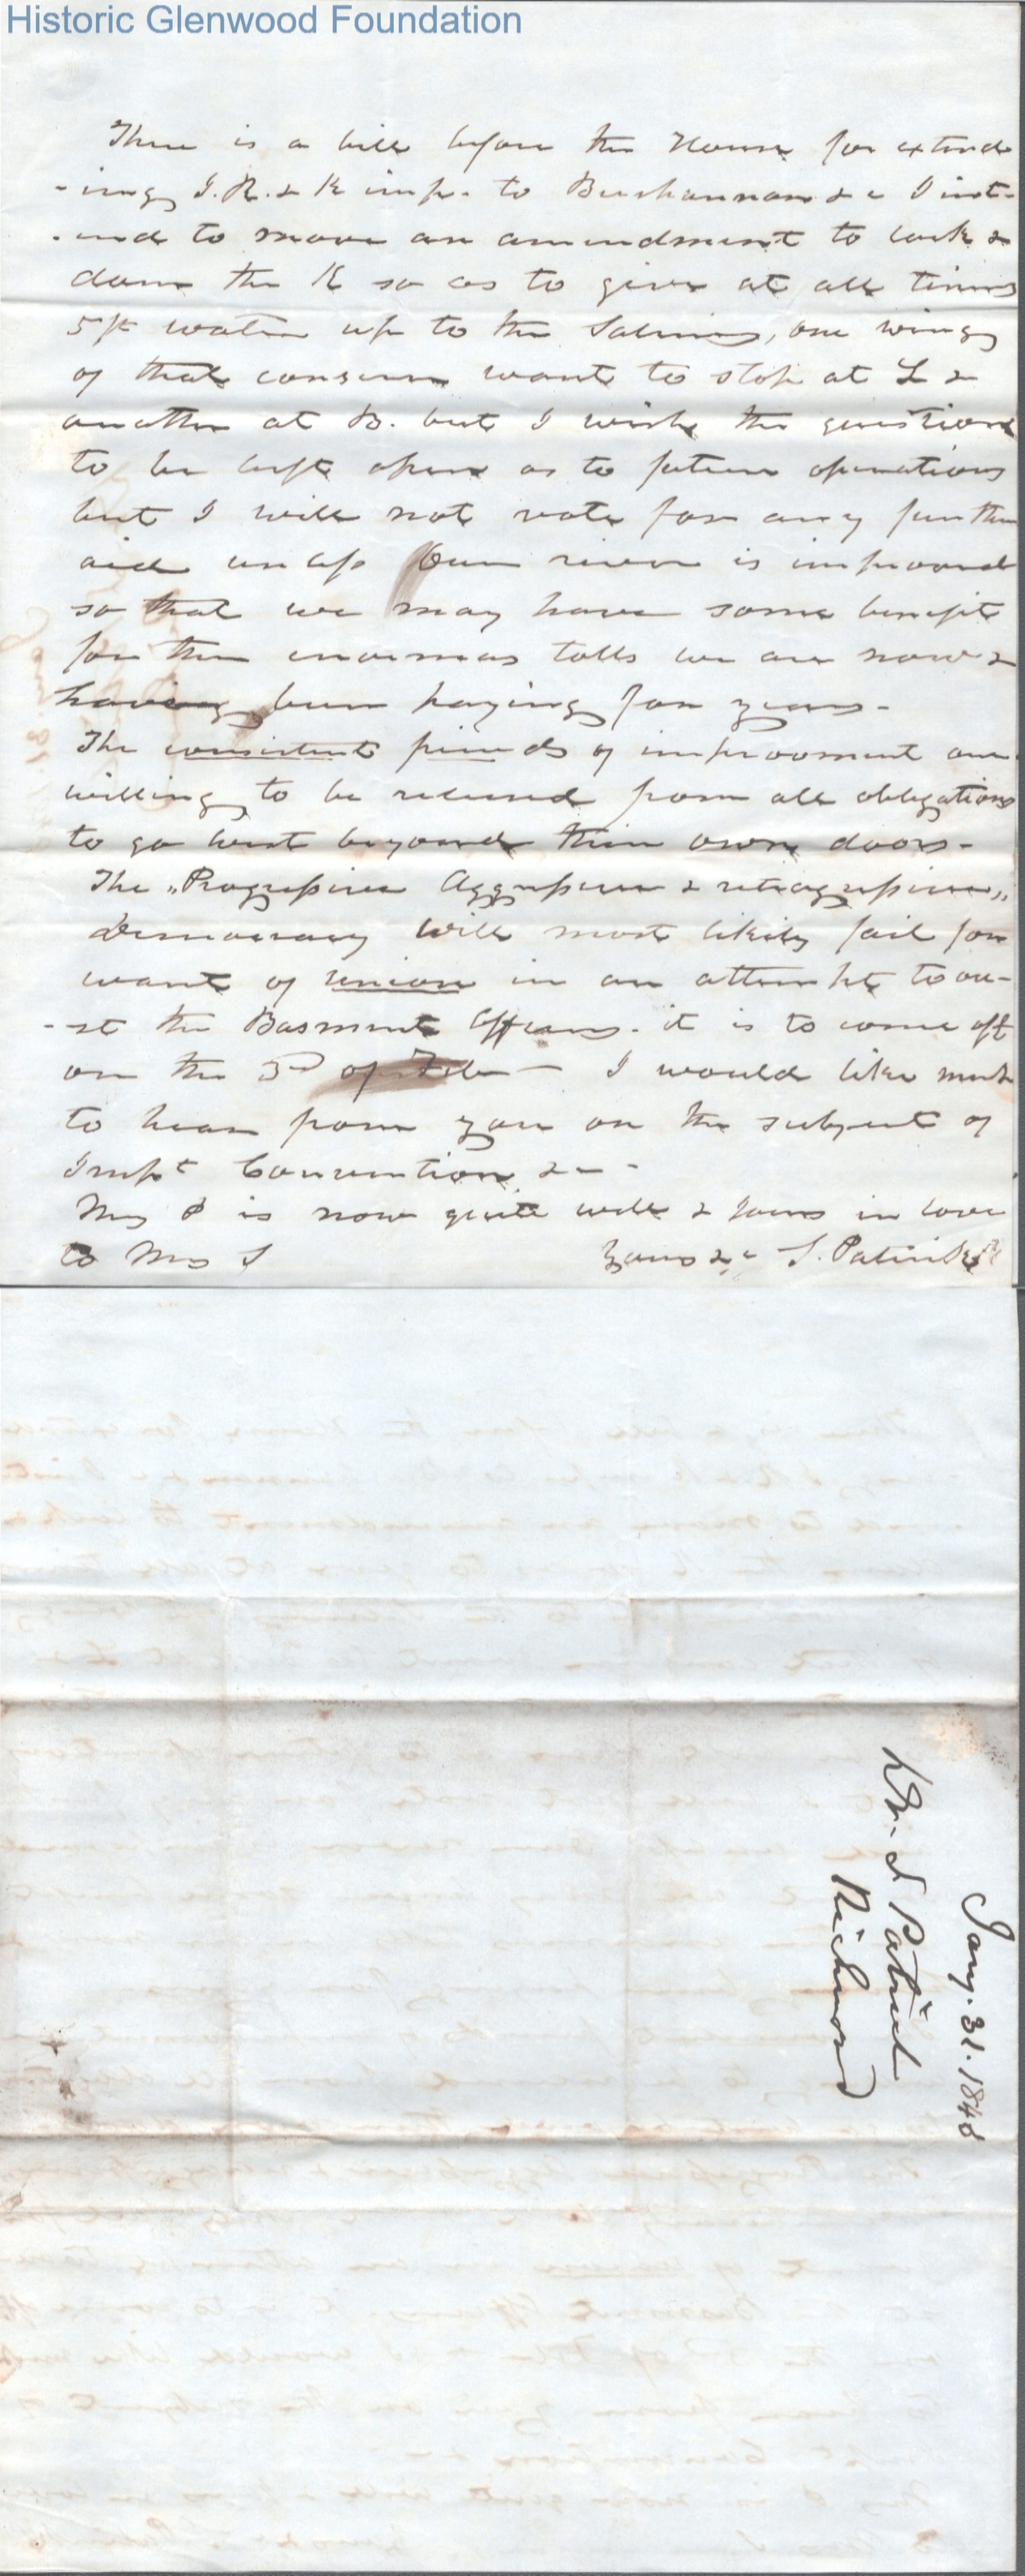 Historic Glenwood Foundation
There is a bill before the House for extend
-ing J.R. & K imp. to Buchannan &c I int-
-end to move an amendment to lock &
dam the K so as to give at all times
5 ft water up to the Salines, one wing
of that concern want to stop at L &
another at B. but I wish the question
to be left open as to future operations
but I will not vote for any further
aid unless Our river is improved
so that we may have some benefit
for the enormas tolls we are now &
having been paying for years -
The consistent friends of improvement are
willing to be relieved from all obligations
to go west beyond their own doors -
The „Progressive Aggressive & retrogressive„
Democracy will most likely fail for
want of union in an attempt to ou-
-st the Basment Officers. it is to come off
on the 3rd of Feb - I would like much
to hear from you on the subject of
Impt Convention &c -
Mrs P is now quite well & joins in love
to Mrs S Yours &c S. Patrick
Jany. 31. 1848
Dr. S Patrick
Richmond